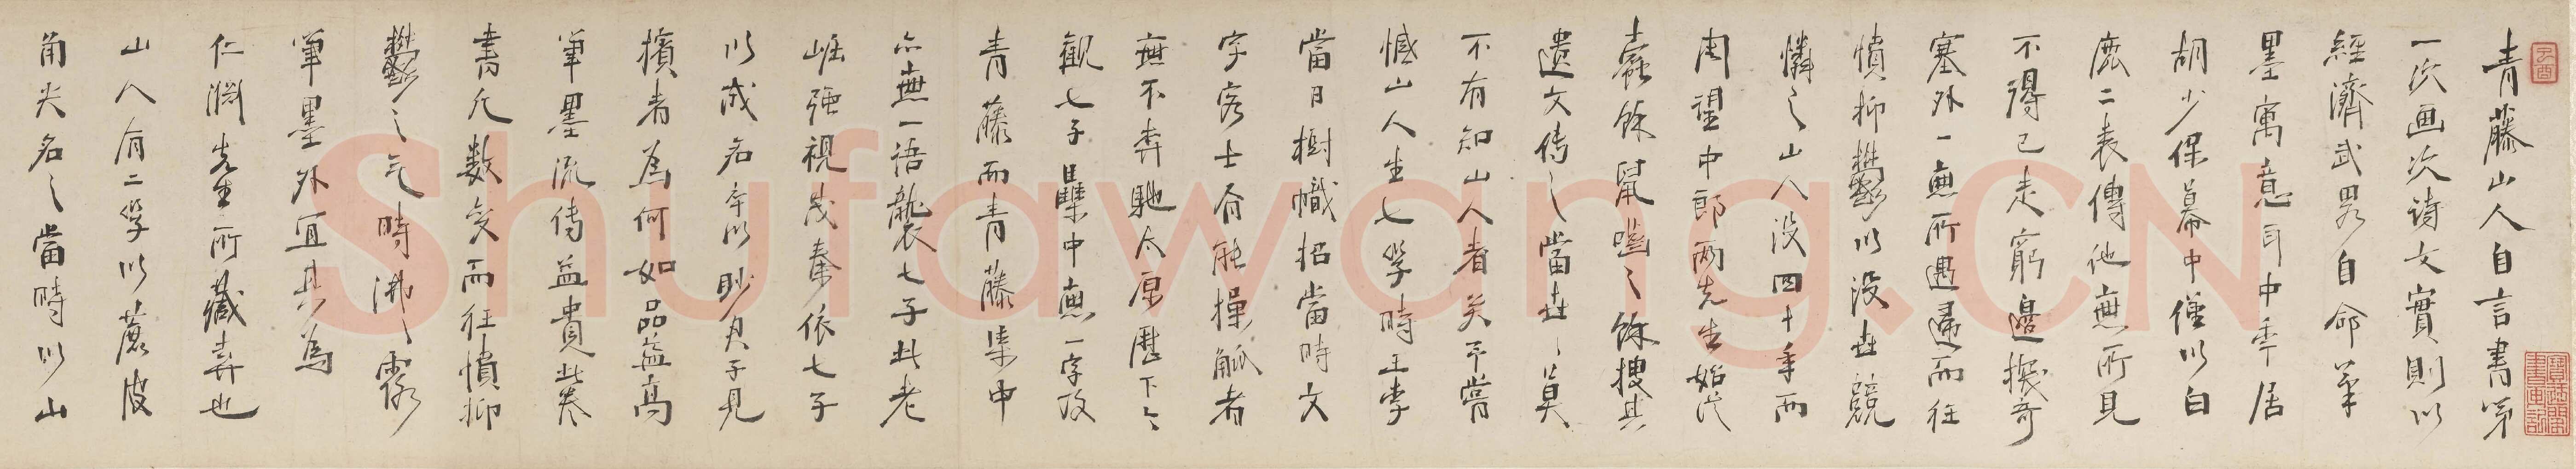 青藤山人自言書第
一次画次詩文實則以
經濟武畧自命筆
墨寓意耳中年居
胡少保幕中僅以白
鹿二表傳他無所見
不得已走窮邊探奇
塞外一無所遇歸而往
憤抑鬱以没世競
憐之山人没四十年而
陶望中郎两先生始從
蠹餘鼠嚙之餘搜其
遗文傳之當世世莫
不有知山人者矣予嘗
憾山人生七子時王李
當日樹幟招當時文
字客士有能操觚者
無不奔馳太原歷下
觀七子集中無一字及
青藤而青藤集中
亦無一語襲七子此老
崛强視茂秦依七子
以成名卒以眇見
擯者為何如品益高
筆墨流傳益貴此卷
書凡數変而狂憤抑
鬱之氣時沸沸露
筆墨外宜其為
仁淵先生所藏弆也
山人有二孚以麓陂
角尖名之當時以山
Shufawang.CN